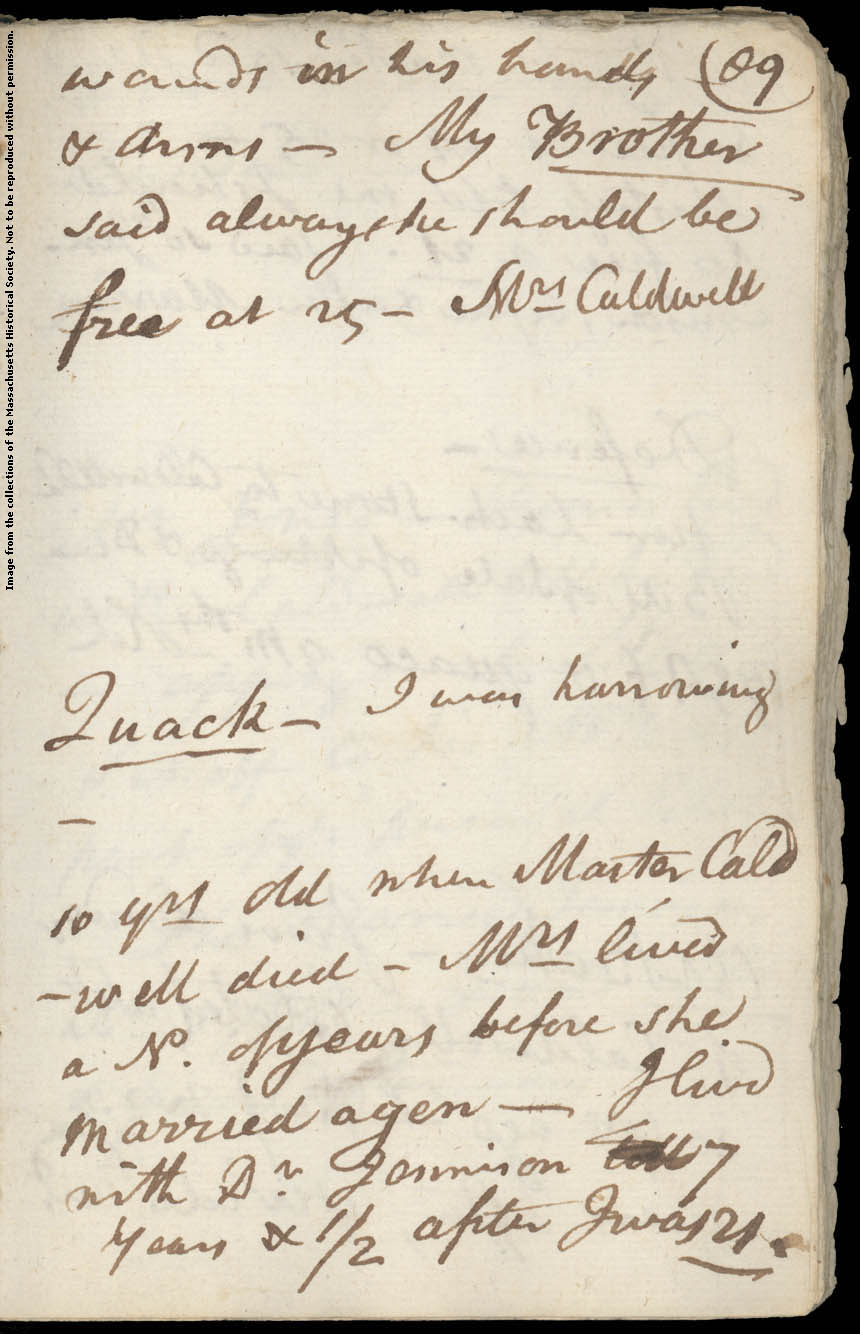 Image from the collections of the Massachusetts Historical Society. Not to be reproduced without permission.
89
wounds in his hands
& Arms — My Brother
said always he should be
free at 25 — Mrs Caldwell
Quack — I was harrowing
—
10 yrs old when Master Cald
-well died — Mrs lived
a N. of years before she
married agen — I livd
with Dr Jennison 7
Years & 1/2 after I was 21.